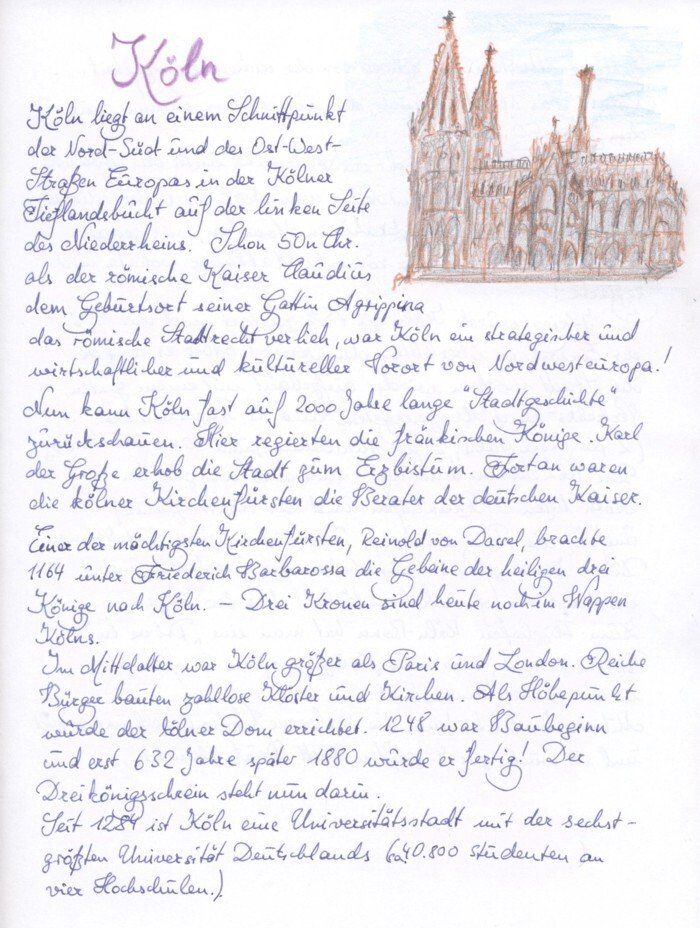 Köln
Köln liegt an einem Schnittpunkt
der Nord-Süd und der Ost-West-
Straßen Europas in der Kölner
Tieflandsbucht auf der linken Seite
des Niederrheins. Schon 50 n Chr.
als der römische Kaiser Claudius
dem Geburtsort seiner Gattin Agrippina
das römische Stadtrecht verlieh, war Köln ein strategischer und
wirtschaftlicher und kultureller Vorort von Nordwesteuropa!
Nun kann Köln fast auf 2000 Jahre lange "Stadtgeschichte"
zurückschauen. Hier regierten die fränkischen Könige. Karl
der Große erhob die Stadt zum Erzbistum. Fortan waren
die kölner Kirchenfürsten die Berater der deutschen Kaiser.
Einer der mächtigsten Kirchenfürsten, Reinold von Dassel, brachte
1164 unter Friederich Barbarossa die Gebeine der heiligen drei
Könige nach Köln. – Drei Kronen sind heute noch im Wappen
Kölns.
Im Mittelalter war Köln größer als Paris und London. Reiche
Bürger bauten zahllose Klöster und Kirchen. Als Höhepunkt
wurde der kölner Dom errichtet. 1248 war Baubeginn
und erst 632 Jahre später 1880 wurde er fertig! Der
Dreikönigsschrein steht nun darin.
Seit 1284 ist Köln eine Universitätsstadt mit der sechst-
größten Universität Deutschlands (ca. 40.800 Studenten an
vier Hochschulen.)